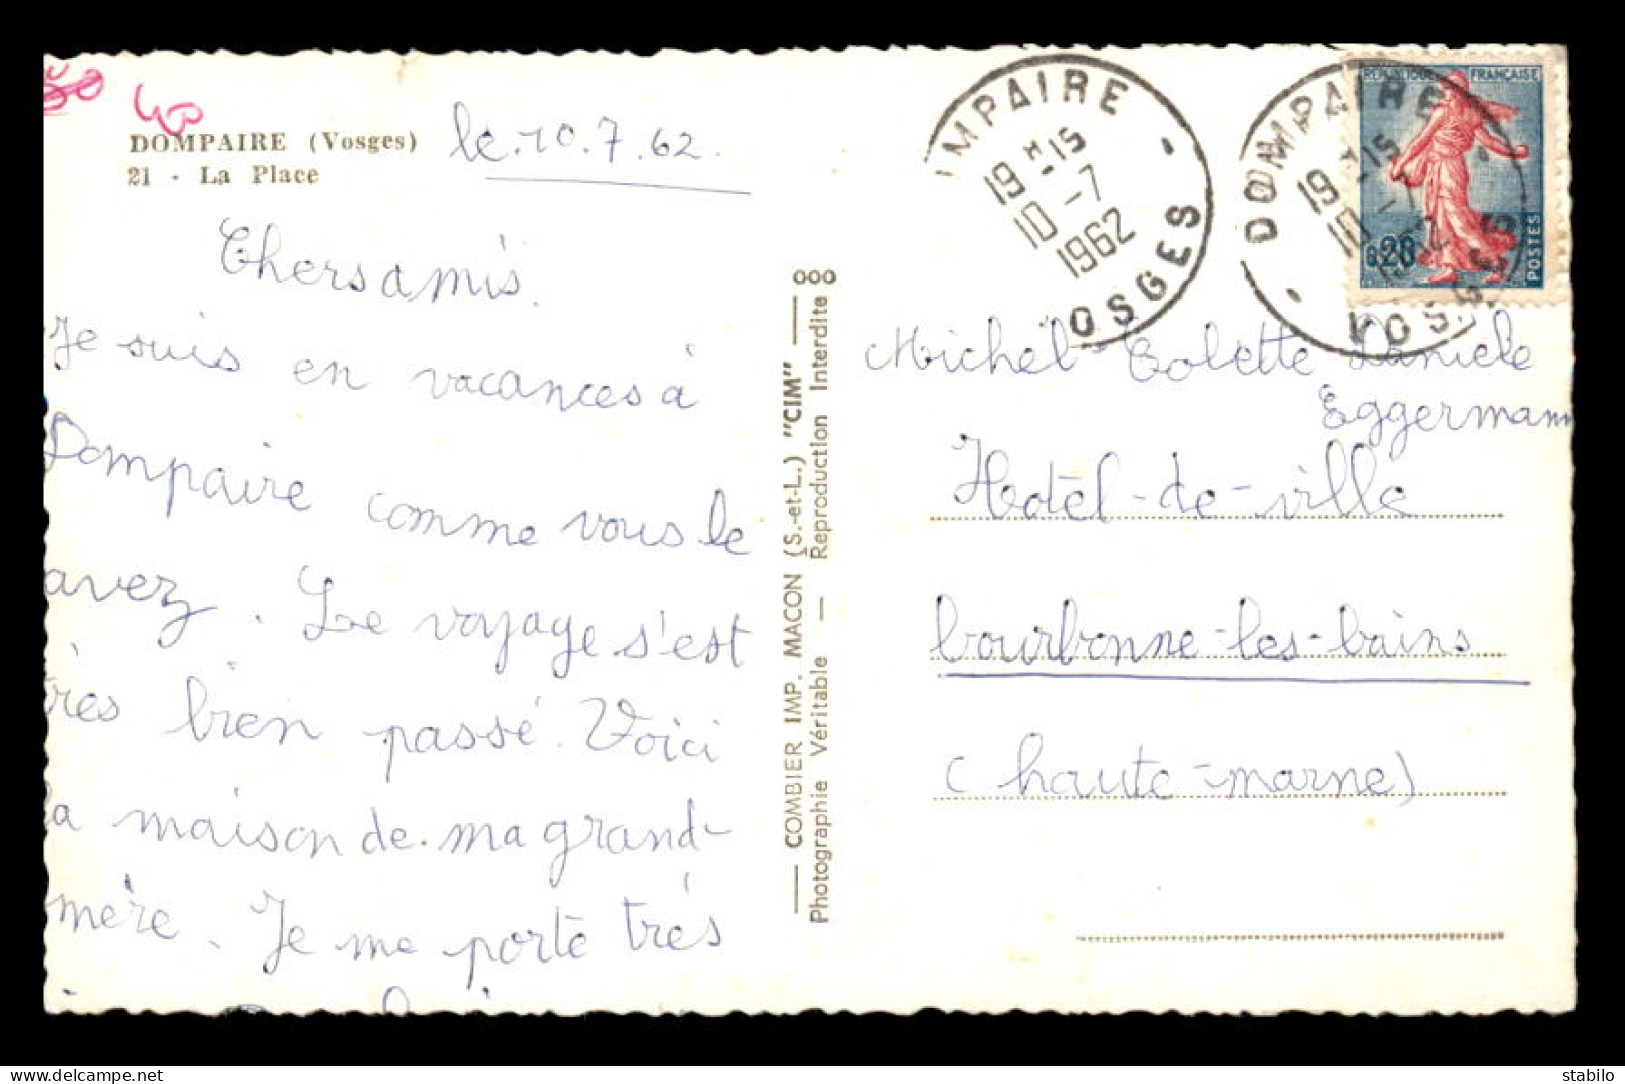 50 40
DOMPAIRE (Vosges)
21 - La Place
le 10.7.62.
Chers amis.
Je suis en vacances à
Dompaire comme vous le
avez. Le voyage s'est
rès bien passé. Voici
la maison de ma grand-
mère. Je me porte très
COMBIER IMP. MACON (S.-et-L.) "CIM"
Photographie Véritable — Reproduction Interdite
IMPAIRE
19H-15
10-7
1962
OSGES
DOMPAIRE
19H-15
10-7
VOSGES
REPUBLIQUE FRANÇAISE
0,20
POSTES
Michel Colette Danièle
Eggermann
Hotêl-de-ville
bourbonne-les-bains
(haute-marne)
stabilo